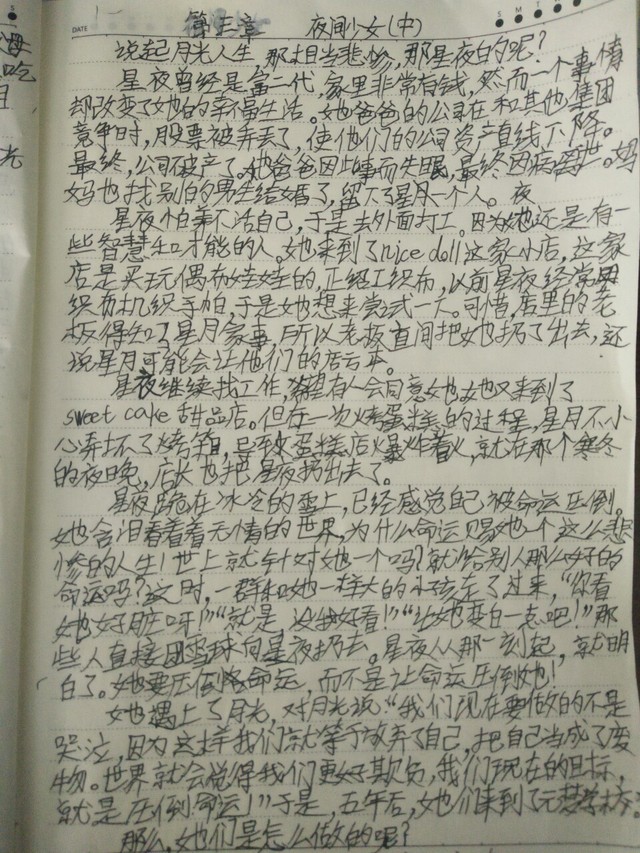 海
吃
光
DATE
S M T W
第三章 夜间少女(中)
说起月光人生,那相当悲惨,那星夜的呢?
星夜曾经是富二代,家里非常有钱,然而一个事情
却改变了她的幸福生活。她爸爸的公司在和其他集团
竞争时,股票被弄丢了,使他们的公司资产直线下降。
最终,公司破产了。他爸爸因此事而失眠,最终因病离世。妈
妈也找别的男生结婚了,留下了星月一个人。夜
星夜怕养不活自己,于是去外面打工。因为她还是有一
些智慧和才能的人。她来到了nice doll这家小店,这家
店是买玩偶布娃娃的,正经工织布,以前星夜经常用
织布机织手帕,于是她想来尝试一下。可惜,店里的老
板得知了星月家事,所以老板直间把她扔了出去,还
说星月可能会让他们的店亏本。
星夜继续找工作,希望有人会同意她,她又来到了
sweet cake 甜品店。但在一次烤蛋糕的过程,星月不小
心弄坏了烤箱,导致蛋糕店爆炸着火,就在那个寒冬
的夜晚,店长也把星夜扔出去了。
星夜跪在冰冷的雪上,已经感觉自己被命运压倒。
她含泪看着着无情的世界,为什么命运赐她个这么悲
惨的人生!世上就针对她一个吗?就给别人那么好的
命运吗?这时,一群和她一样大的小孩走了过来,“你看
她好脏呀!”“就是,没我好看!”“让她变白一点吧!”那
些人直接团雪球向星夜扔去。星夜从那一刻起,就明
白了。她要压倒命运,而不是让命运压倒她!
她遇上了月光,对月光说“我们现在要做的不是
哭泣,因为这样我们就等于放弃了自己,把自己当成了废
物。世界就会觉得我们更好欺负,我们现在的目标,
就是压倒命运!”于是,五年后,她们来到了元梦学校。
那么,她们是怎么做的呢?